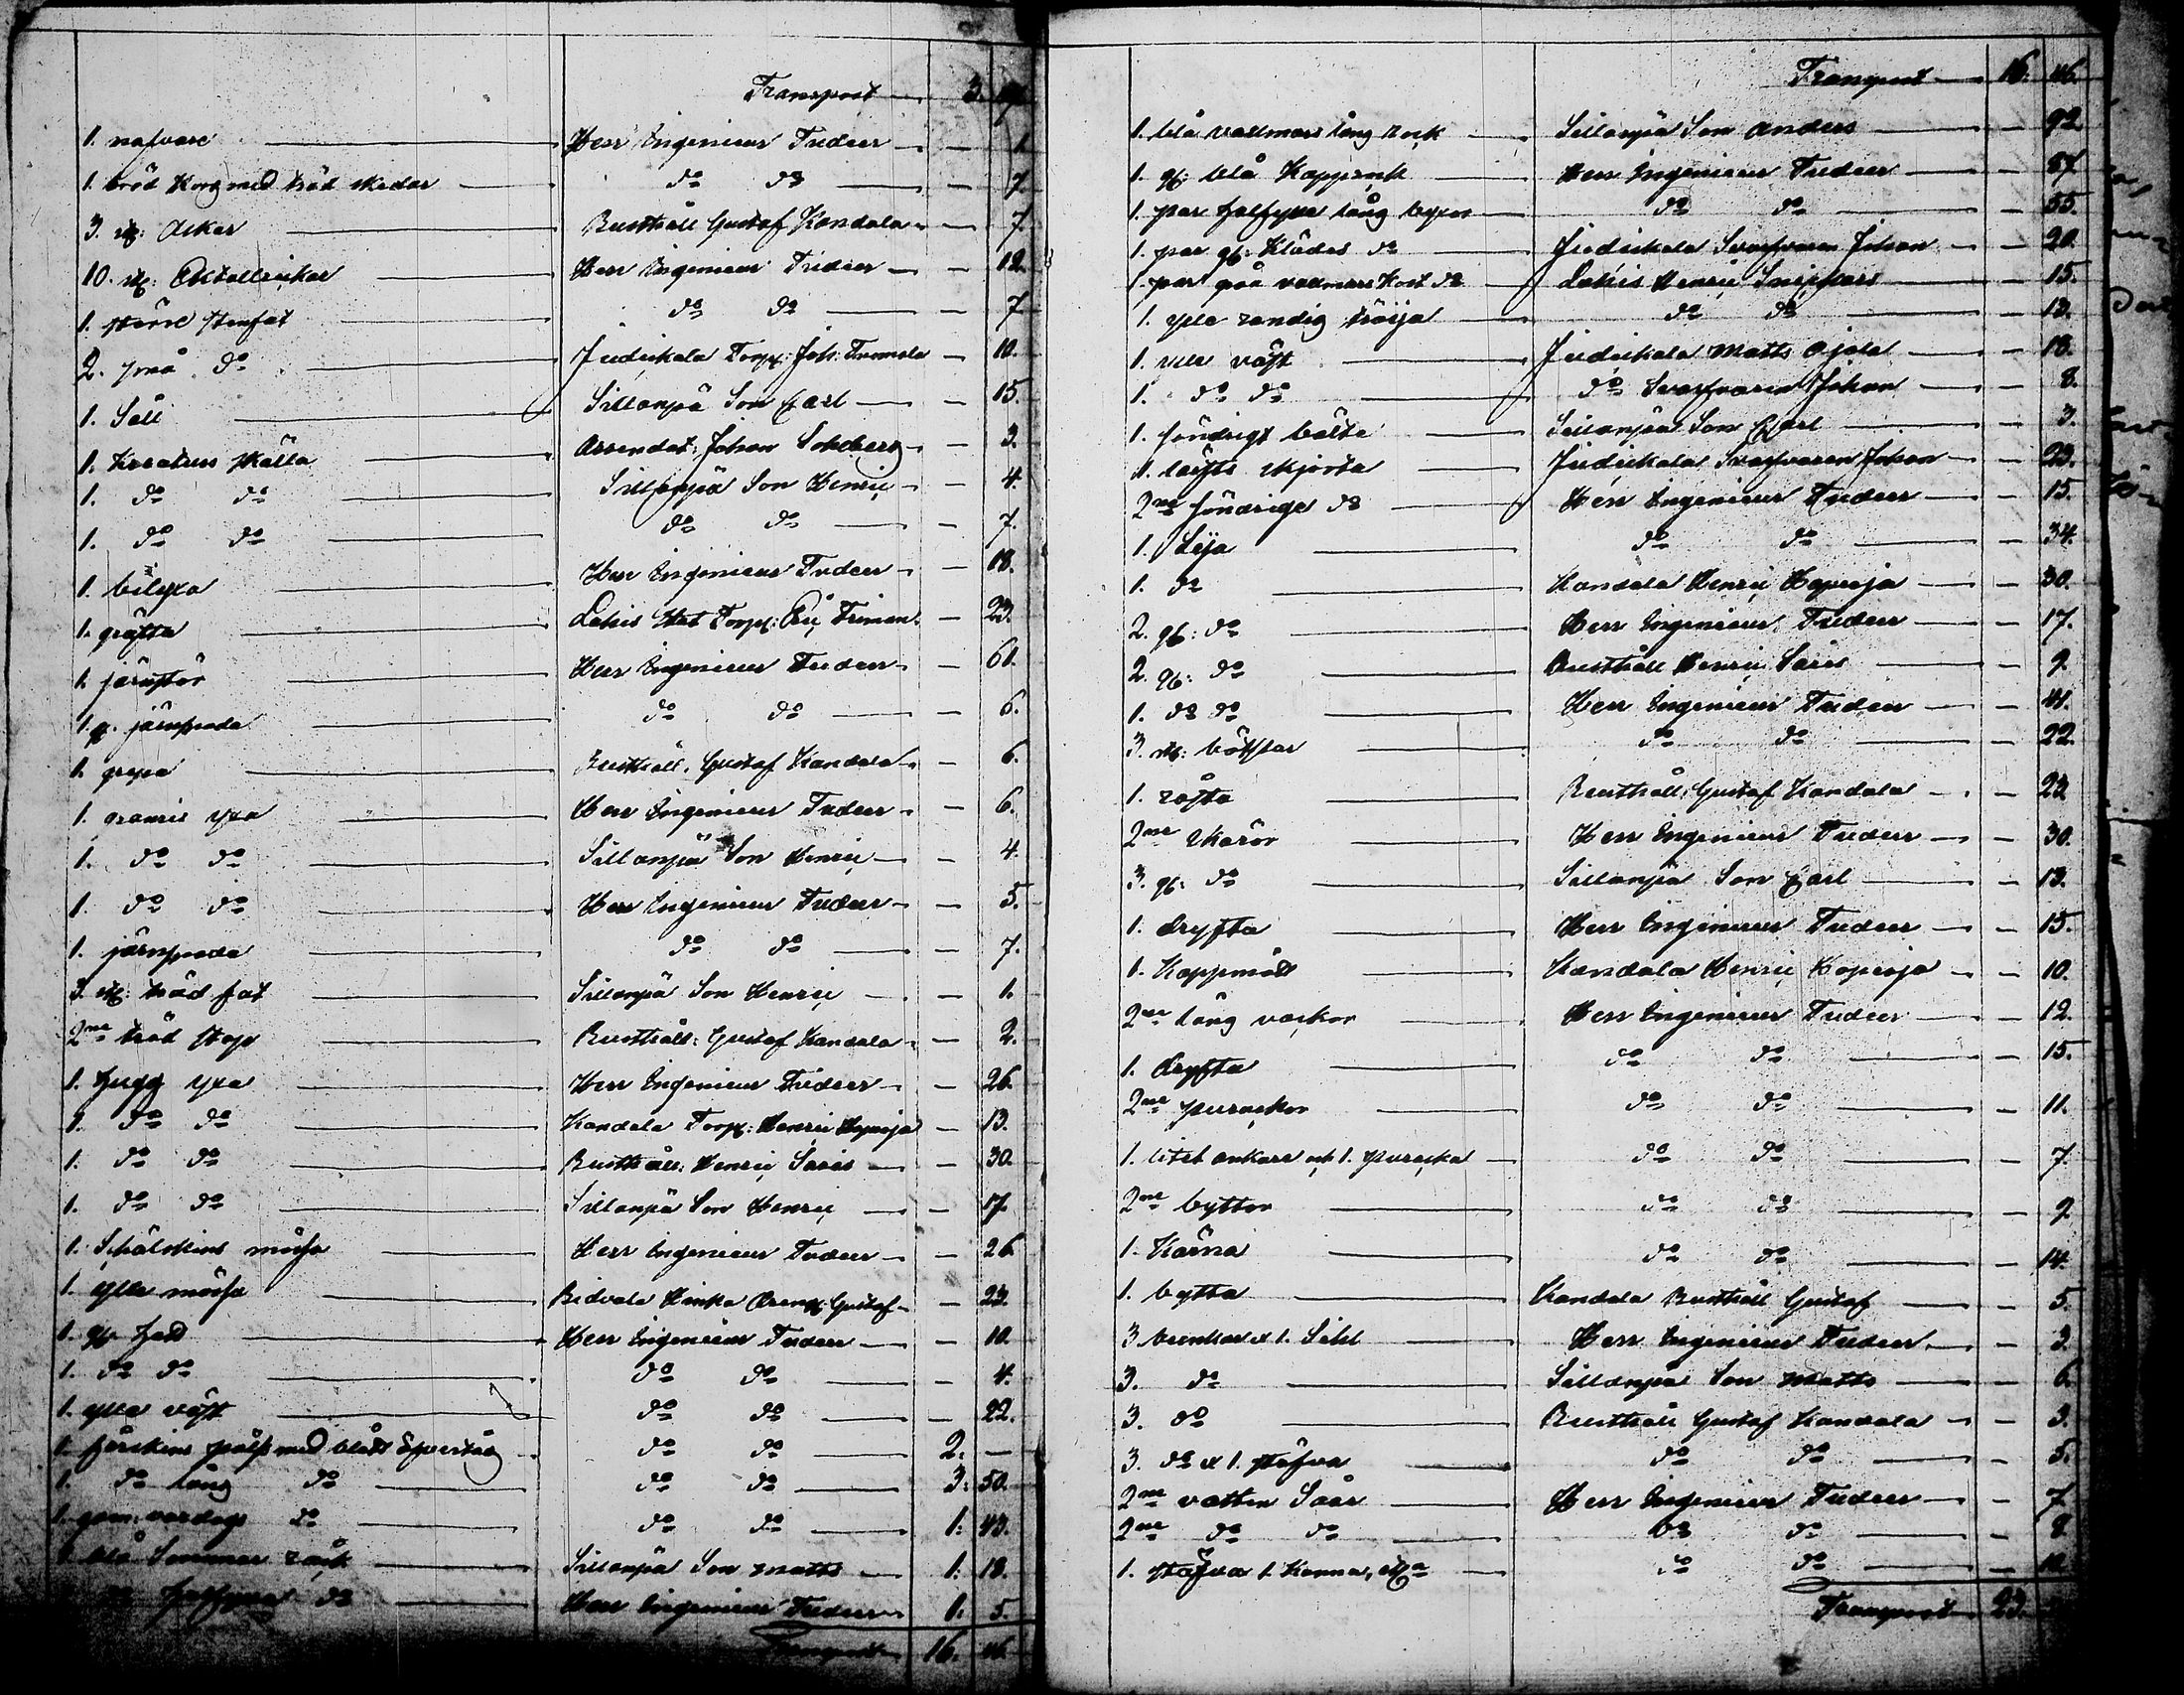 Transport 3.
1. nafvare Herr Ingenieur Tudeer 1.
1. bröd Korg med träd skedar do do 7.
3. st: Askar Rusthåll Gustaf Kandala 7.
10. st: Eketallrickar Herr Ingenieur Tudeer 12.
1. större stenfat do do 7
2. små do Judickala Torp: Joh: 10.
1. Såll Sillanpä Son Carl 15.
1. Kreaturs skälla Arrendat: Johan Sohlberg 3.
1. do do Sillanpä Son Henric 4.
1. do do do do 7.
1. bilyxa Herr Ingenieur Tudeer 18.
1. gräfta Lahis Torp: Eric 23.
1. järnstör Herr Ingenieur Tudeer 61.
1. g. järnspada do do 6.
1. grepa Rusthåll. Gustaf Kandala 6.
1. yxa Herr Ingenieur Tudeer 6.
1. do do Sillanpä Son Henric 4.
1. do do Herr Ingenieur Tudeer 5.
1. järnspada do do 7.
3. st: träd fat Sillanpä Son Henric 1.
2ne träd stop Rusthåll: Gustaf Kandala 2.
1. hugg yxa Herr Ingenieur Tudeer 26.
1. do do Kandala Torp: Henric 13.
1. do do Rusthåll: Henric Saris 30.
1. do do Sillanpä Son Henric 17.
1. Schälskins mössa Herr Ingenieur Tudeer 26.
1. ylle mössa Gustaf 23.
1. gl. Herr Ingenieur Tudeer 10.
1. do do do do 4.
1. ylle väst do do 22.
1. fårskins päls med blått do do 2. —
1. do lång do do do 3: 50.
1. gam: vardags do do do 1: 43.
1. blå Sommar rock Sillanpä Son Matts 1: 18.
do halfylle do Herr Ingenieur Tudeer 1: 5.
Transport 16. 46.
Transport 16. 46.
1. blå vallmars lång rock Sillanpä Son Anders 92.
1. gl: blå Kapprock Herr Ingenieur Tudeer 87.
1. par halfylle lång byxor do do 55.
1. par gl: Klädes do Judickala Svarfvaren Johan 20.
1. par grå vallmars Kort do Lahis Henric 15.
1. ylle randig tröija do do 13.
1. ylle väst Judickala Matts Ojala 18.
1. do do do Svarfvaren Johan 8.
1. söndrigt bälte Sillanpä Son Carl 3.
1. lärfts skjorta Judickala Svarfvaren Johan 23.
2ne söndriga do Herr Ingenieur Tudeer 15.
1. Lija do do 34.
1. do Kandala Henric 30.
2. gl: do Herr Ingenieur Tudeer 17.
2. gl: do Rusthåll Henric Saris 9.
1. do do Herr Ingenieur Tudeer 41.
3. st: do do 22.
1. Rusthåll: Gustaf Kandala 23
2ne skäror Herr Ingenieur Tudeer 30.
3. gl: do Sillanpä Son Carl 13.
1. dryfta Herr Ingenieur Tudeer 15.
1. Kappmått Kandala Henric 10.
2ne lång vackor Herr Ingenieur Tudeer 12.
1. dryfta do do 15.
2ne do do 11.
1. litet ankare och 1. do do 7.
2ne byttor do do 9.
1. Kärna do do 14.
1. bytta Kandala Rusthåll Gustaf 5.
3 bunkar & 1. Sihl Herr Ingenieur Tudeer 3.
3. do Sillanpä Son Matts 6.
3. do Rusthåll Gustaf Kandala 3.
3. do & 1. stäfva do do 5.
2ne vatten Såar Herr Ingenieur Tudeer 7.
2ne do do do do 8.
1. stäfva 1. Kanna, do do
Transport 23.